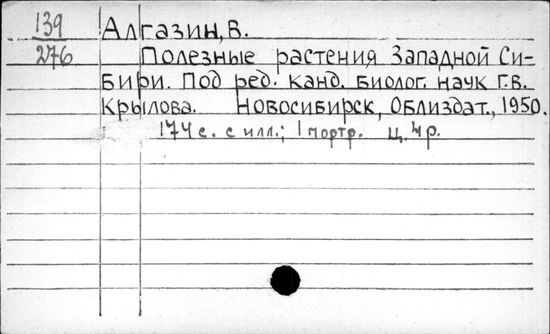 139 Алгазин, В.
276 Полезные растения Западной Си-
бири. Под ред. канд. биолог. наук Г.В.
Крылова. Новосибирск, Облиздат., 1950.
174 с. с илл.; 1 портр. Ц. 4 р.